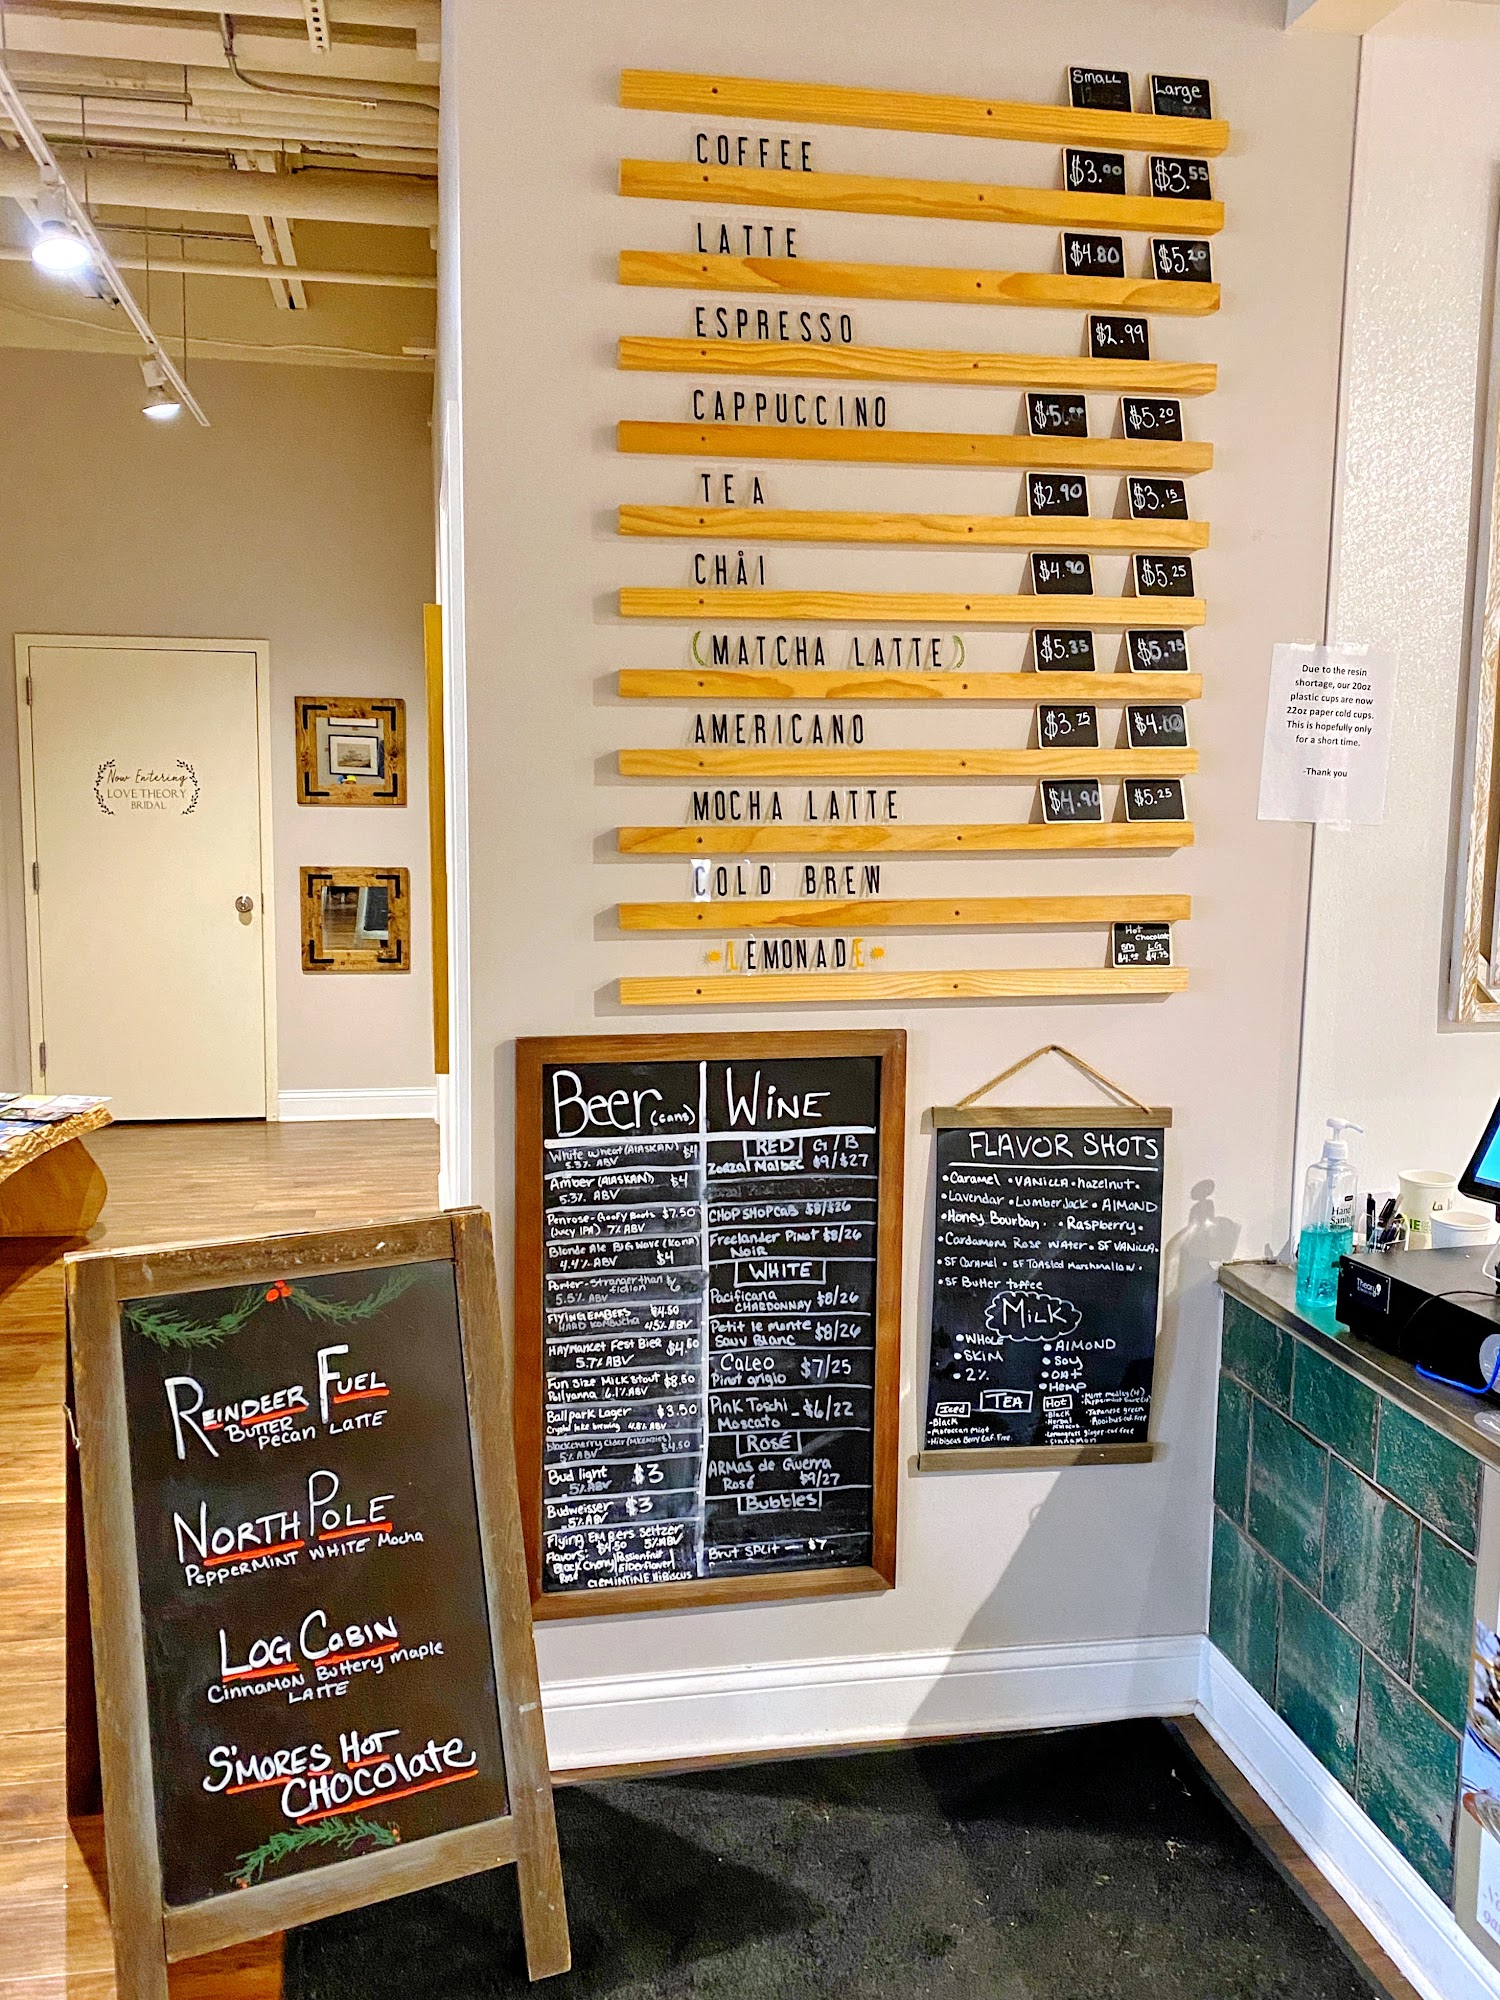 Small Large
COFFEE $3.00 $3.55
LATTE $4.80 $5.20
ESPRESSO $2.99
CAPPUCCINO $5.20
TEA $2.90 $3.15
CHÅI $4.90 $5.25
(MATCHA LATTE) $5.35 $5.75
AMERICANO $3.75 $4.00
MOCHA LATTE $4.90 $5.25
COLD BREW
LEMONADE
Hot
Chocolate
SM LG
$4.75
Due to the resin
shortage, our 20oz
plastic cups are now
22oz paper cold cups.
This is hopefully only
for a short time.
-Thank you
Now Entering
LOVE THEORY
BRIDAL
Beer (cans)
White wheat (ALASKAN) $4
5.3% ABV
Amber (ALASKAN) $4
5.3% ABV
Penrose-Goofy Boots $7.50
(Juicy IPA) 7% ABV
Blonde Ale BIG Wave (Kona)
4.4% ABV $4
Porter-Stranger than
fiction 6
5.5% ABV
FLYING EMBERS $4.50
HARD KOMBUCHA 4.5% ABV
Haymarket Fest Bier $4.50
5.7% ABV
Fun Size Milk Stout $8.50
Pollyanna 6.1% ABV
Ballpark Lager $3.50
Crystal lake brewing 4.8% ABV
Blackcherry Cider (McKenzies)
5% ABV $4.50
Bud light $3
.5% ABV
Budweisser $3
.5% ABV
Flying Embers Seltzer
$4.50 5% ABV
Flavors:
Black Cherry/Passionfruit
Rosé Elderflower/
CLEMINTINE Hibiscus
WINE
RED G/B
Zorzal Malbec $9/$27
CHOP SHOP CAB $8/$26
Freelander Pinot $8/26
Noir
WHITE
Pacificana
CHARDONNAY $8/26
Petit le monte $8/26
Sauv Blanc
Caleo $7/25
Pinot grigio
Pink Toschi - $6/22
Moscato
ROSÉ
ARMAS de Guerra
Rosé $9/27
Bubbles
Brut SPLIT - $7
FLAVOR SHOTS
•Caramel •VANILLA •hazelnut•
•Lavendar •Lumber Jack • AlMOND
•Honey Bourban • •Raspberry•
•Cardamom Rose Water •SF VANILLA•
•SF Caramel •SF TOASted Marshmallow•
•SF Butter toffee
MILK
•WHOLE •AlMOND
•SKIM •Soy
•2% •Oat
•Hemp
TEA
Iced
-Black
-Moroccan Mint
-Hibiscus Berry Caf. Free
Hot
-Black
-Herbal
-Japanese green
-Rooibus caf. free
-Lemongrass ginger-caf free
-Cinnamon
Hand
Theory
REINDEER FUEL
BUTTER
Pecan LATTE
NORTH POLE
PEPPERMINT WHITE Mocha
LOG CABIN
Cinnamon Buttery maple
LATTE
S'MORES HOT
CHOCOlate